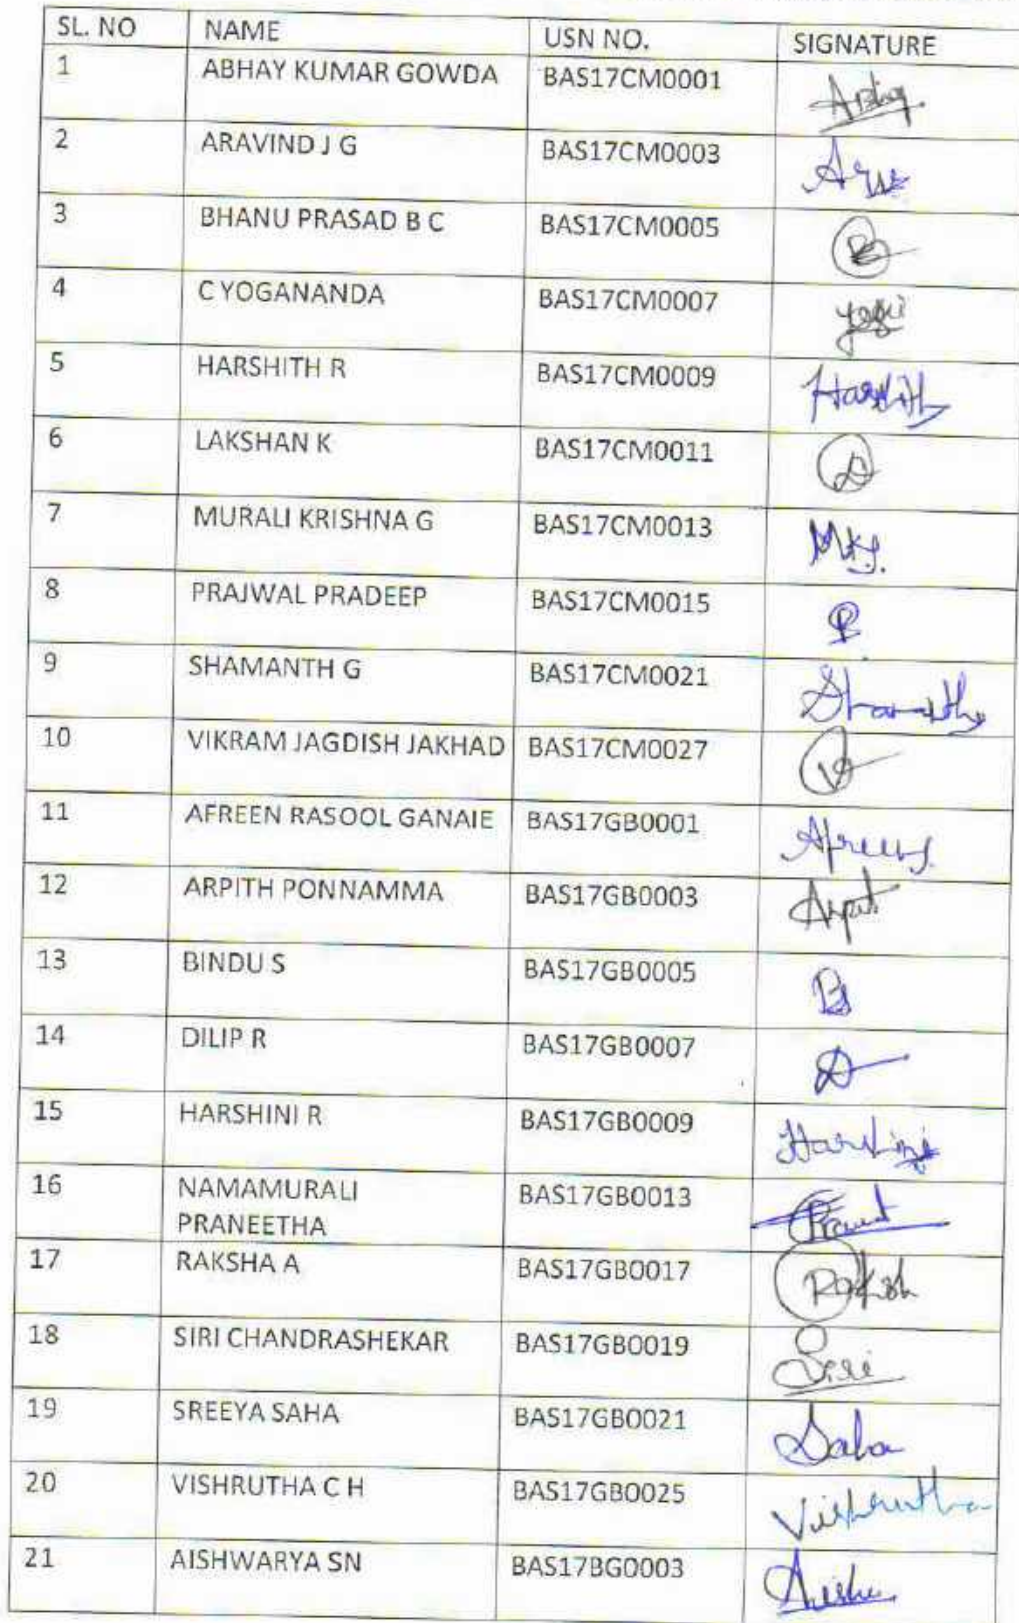 SL. NO NAME USN NO. SIGNATURE
1 ABHAY KUMAR GOWDA BAS17CM0001 Abhay
2 ARAVIND J G BAS17CM0003
3 BHANU PRASAD B C BAS17CM0005
4 C YOGANANDA BAS17CM0007 yogi
5 HARSHITH R BAS17CM0009 Harshith
6 LAKSHAN K BAS17CM0011
7 MURALI KRISHNA G BAS17CM0013 Mkg.
8 PRAJWAL PRADEEP BAS17CM0015
9 SHAMANTH G BAS17CM0021 Shamanth
10 VIKRAM JAGDISH JAKHAD BAS17CM0027
11 AFREEN RASOOL GANAIE BAS17GB0001 Afreen
12 ARPITH PONNAMMA BAS17GB0003 Arpit
13 BINDU S BAS17GB0005 Bs
14 DILIP R BAS17GB0007
15 HARSHINI R BAS17GB0009 Harshini
16 NAMAMURALI BAS17GB0013
PRANEETHA
17 RAKSHA A BAS17GB0017 Raksh
18 SIRI CHANDRASHEKAR BAS17GB0019 Siri
19 SREEYA SAHA BAS17GB0021 Saha
20 VISHRUTHA C H BAS17GB0025 Vishrutha
21 AISHWARYA SN BAS17BG0003 Aishu